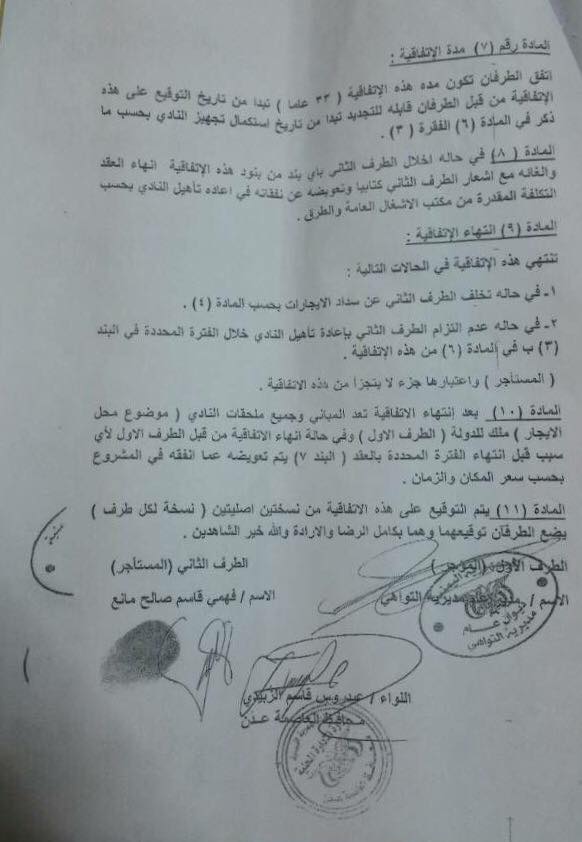 المادة رقم (٧) مدة الإتفاقية :
اتفق الطرفان تكون مده هذه الإتفاقية ( ٣٣ عاما ) تبدا من تاريخ التوقيع على هذه
الإتفاقية من قبل الطرفان قابله للتجديد تبدا من تاريخ استكمال تجهيز النادي بحسب ما
ذكر في المادة (٦) الفقرة (٣) .
المادة (٨) في حاله اخلال الطرف الثاني باي بند من بنود هذه الإتفاقية انهاء العقد
والغائه مع اشعار الطرف الثاني كتابيا وتعويضه عن نفقاته في اعاده تأهيل النادي بحسب
التكلفة المقدرة من مكتب الاشغال العامة والطرق .
المادة (٩) انتهاء الإتفاقية :
تنتهي هذه الإتفاقية في الحالات التالية :
١- في حاله تخلف الطرف الثاني عن سداد الايجارات بحسب المادة (٤) .
٢- في حاله عدم التزام الطرف الثاني بإعادة تأهيل النادي خلال الفترة المحددة في البند
(٣) ب في المادة (٦) من هذه الإتفاقية .
( المستأجر ) واعتبارها جزء لا يتجزأ من هذه الاتفاقية .
المادة (١٠) بعد إنتهاء الاتفاقية تعد المباني وجميع ملحقات النادي ( موضوع محل
الايجار ) ملك للدولة ( الطرف الاول ) وفي حالة انهاء الاتفاقية من قبل الطرف الاول لأي
سبب قبل انتهاء الفترة المحددة بالعقد ( البند ٧ ) يتم تعويضه عما انفقه في المشروع
بحسب سعر المكان والزمان .
المادة (١١) يتم التوقيع على هذه الاتفاقية من نسختين اصليتين ( نسخة لكل طرف )
يضع الطرفان توقيعهما وهما بكامل الرضا والارادة والله خير الشاهدين .
الطرف الاول (المؤجر) الطرف الثاني (المستأجر)
الاسم / مديرية التواهي الاسم / فهمي قاسم صالح مانع
ديوان عام
مديرية التواهي
اللواء / عيدروس قاسم الزبيدي
محافظ العاصمة عدن